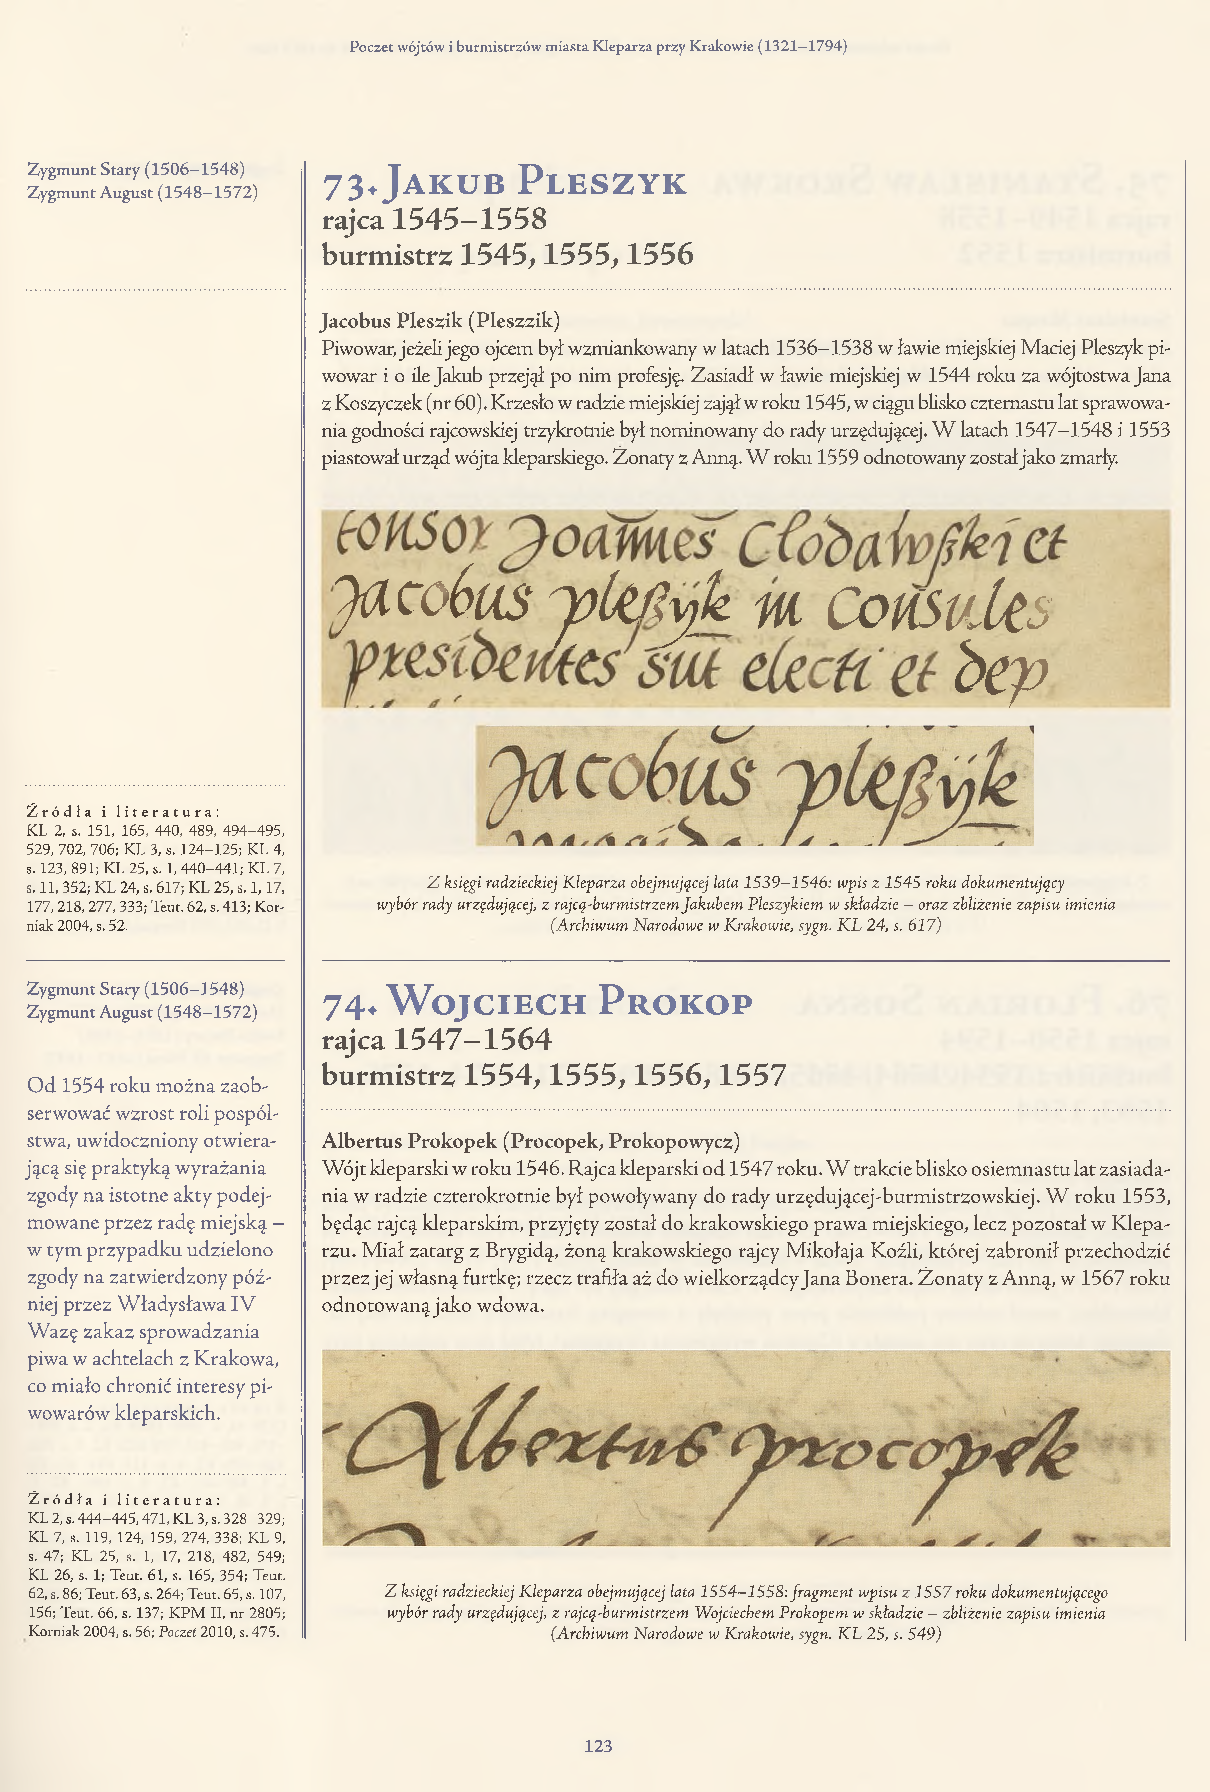 Poczet wójtów i burmistrzów miasta Kleparza przy Krakowie (1321–1794)
Zygmunt Stary (1506–1548)
Zygmunt August (1548–1572)
73. Jakub Pleszyk
rajca 1545–1558
burmistrz 1545, 1555, 1556
Jacobus Pleszik (Pleszzik)
Piwowar, jeżeli jego ojcem był wzmiankowany w latach 1536–1538 w ławie miejskiej Maciej Pleszyk pi-
wowar i o ile Jakub przejął po nim profesję. Zasiadł w ławie miejskiej w 1544 roku za wójtostwa Jana
z Koszyczek (nr 60). Krzesło w radzie miejskiej zajął w roku 1545, w ciągu blisko czternastu lat sprawowa-
nia godności rajcowskiej trzykrotnie był nominowany do rady urzędującej. W latach 1547–1548 i 1553
piastował urząd wójta kleparskiego. Żonaty z Anną. W roku 1559 odnotowany został jako zmarły.
tonsor Joannes Clodawßki et
Jacobus pleßÿk in consules
presidentes sut electi et dep
Jacobus pleßÿk
Z księgi radzieckiej Kleparza obejmującej lata 1539–1546: wpis z 1545 roku dokumentujący
wybór rady urzędującej, z rajcą-burmistrzem Jakubem Pleszykiem w składzie – oraz zbliżenie zapisu imienia
(Archiwum Narodowe w Krakowie, sygn. KL 24, s. 617)
Źródła i literatura:
KL 2, s. 151, 165, 440, 489, 494–495,
529, 702, 706; KL 3, s. 124–125; KL 4,
s. 123, 891; KL 25, s. 1, 440–441; KL 7,
s. 11, 352; KL 24, s. 617; KL 25, s. 1, 17,
177, 218, 277, 333; Teut. 62, s. 413; Kor-
niak 2004, s. 52.
Zygmunt Stary (1506–1548)
Zygmunt August (1548–1572)
Od 1554 roku można zaob-
serwować wzrost roli pospól-
stwa, uwidoczniony otwiera-
jącą się praktyką wyrażania
zgody na istotne akty podej-
mowane przez radę miejską –
w tym przypadku udzielono
zgody na zatwierdzony póź-
niej przez Władysława IV
Wazę zakaz sprowadzania
piwa w achtelach z Krakowa,
co miało chronić interesy pi-
wowarów kleparskich.
Źródła i literatura:
KL 2, s. 444–445, 471, KL 3, s. 328 329;
KL 7, s. 119, 124, 159, 274, 338; KL 9,
s. 47; KL 25, s. 1, 17, 218, 482, 549;
KL 26, s. 1; Teut. 61, s. 165, 354; Teut.
62, s. 86; Teut. 63, s. 264; Teut. 65, s. 107,
156; Teut. 66, s. 137; KPM II, nr 2805;
Korniak 2004, s. 56; Poczet 2010, s. 475.
74. Wojciech Prokop
rajca 1547–1564
burmistrz 1554, 1555, 1556, 1557
Albertus Prokopek (Procopek, Prokopowycz)
Wójt kleparski w roku 1546. Rajca kleparski od 1547 roku. W trakcie blisko osiemnastu lat zasiada-
nia w radzie czterokrotnie był powoływany do rady urzędującej-burmistrzowskiej. W roku 1553,
będąc rajcą kleparskim, przyjęty został do krakowskiego prawa miejskiego, lecz pozostał w Klepa-
rzu. Miał zatarg z Brygidą, żoną krakowskiego rajcy Mikołaja Koźli, której zabronił przechodzić
przez jej własną furtkę; rzecz trafiła aż do wielkorządcy Jana Bonera. Żonaty z Anną, w 1567 roku
odnotowaną jako wdowa.
Albertus procopek
Z księgi radzieckiej Kleparza obejmującej lata 1554–1558: fragment wpisu z 1557 roku dokumentującego
wybór rady urzędującej, z rajcą-burmistrzem Wojciechem Prokopem w składzie – zbliżenie zapisu imienia
(Archiwum Narodowe w Krakowie, sygn. KL 25, s. 549)
123